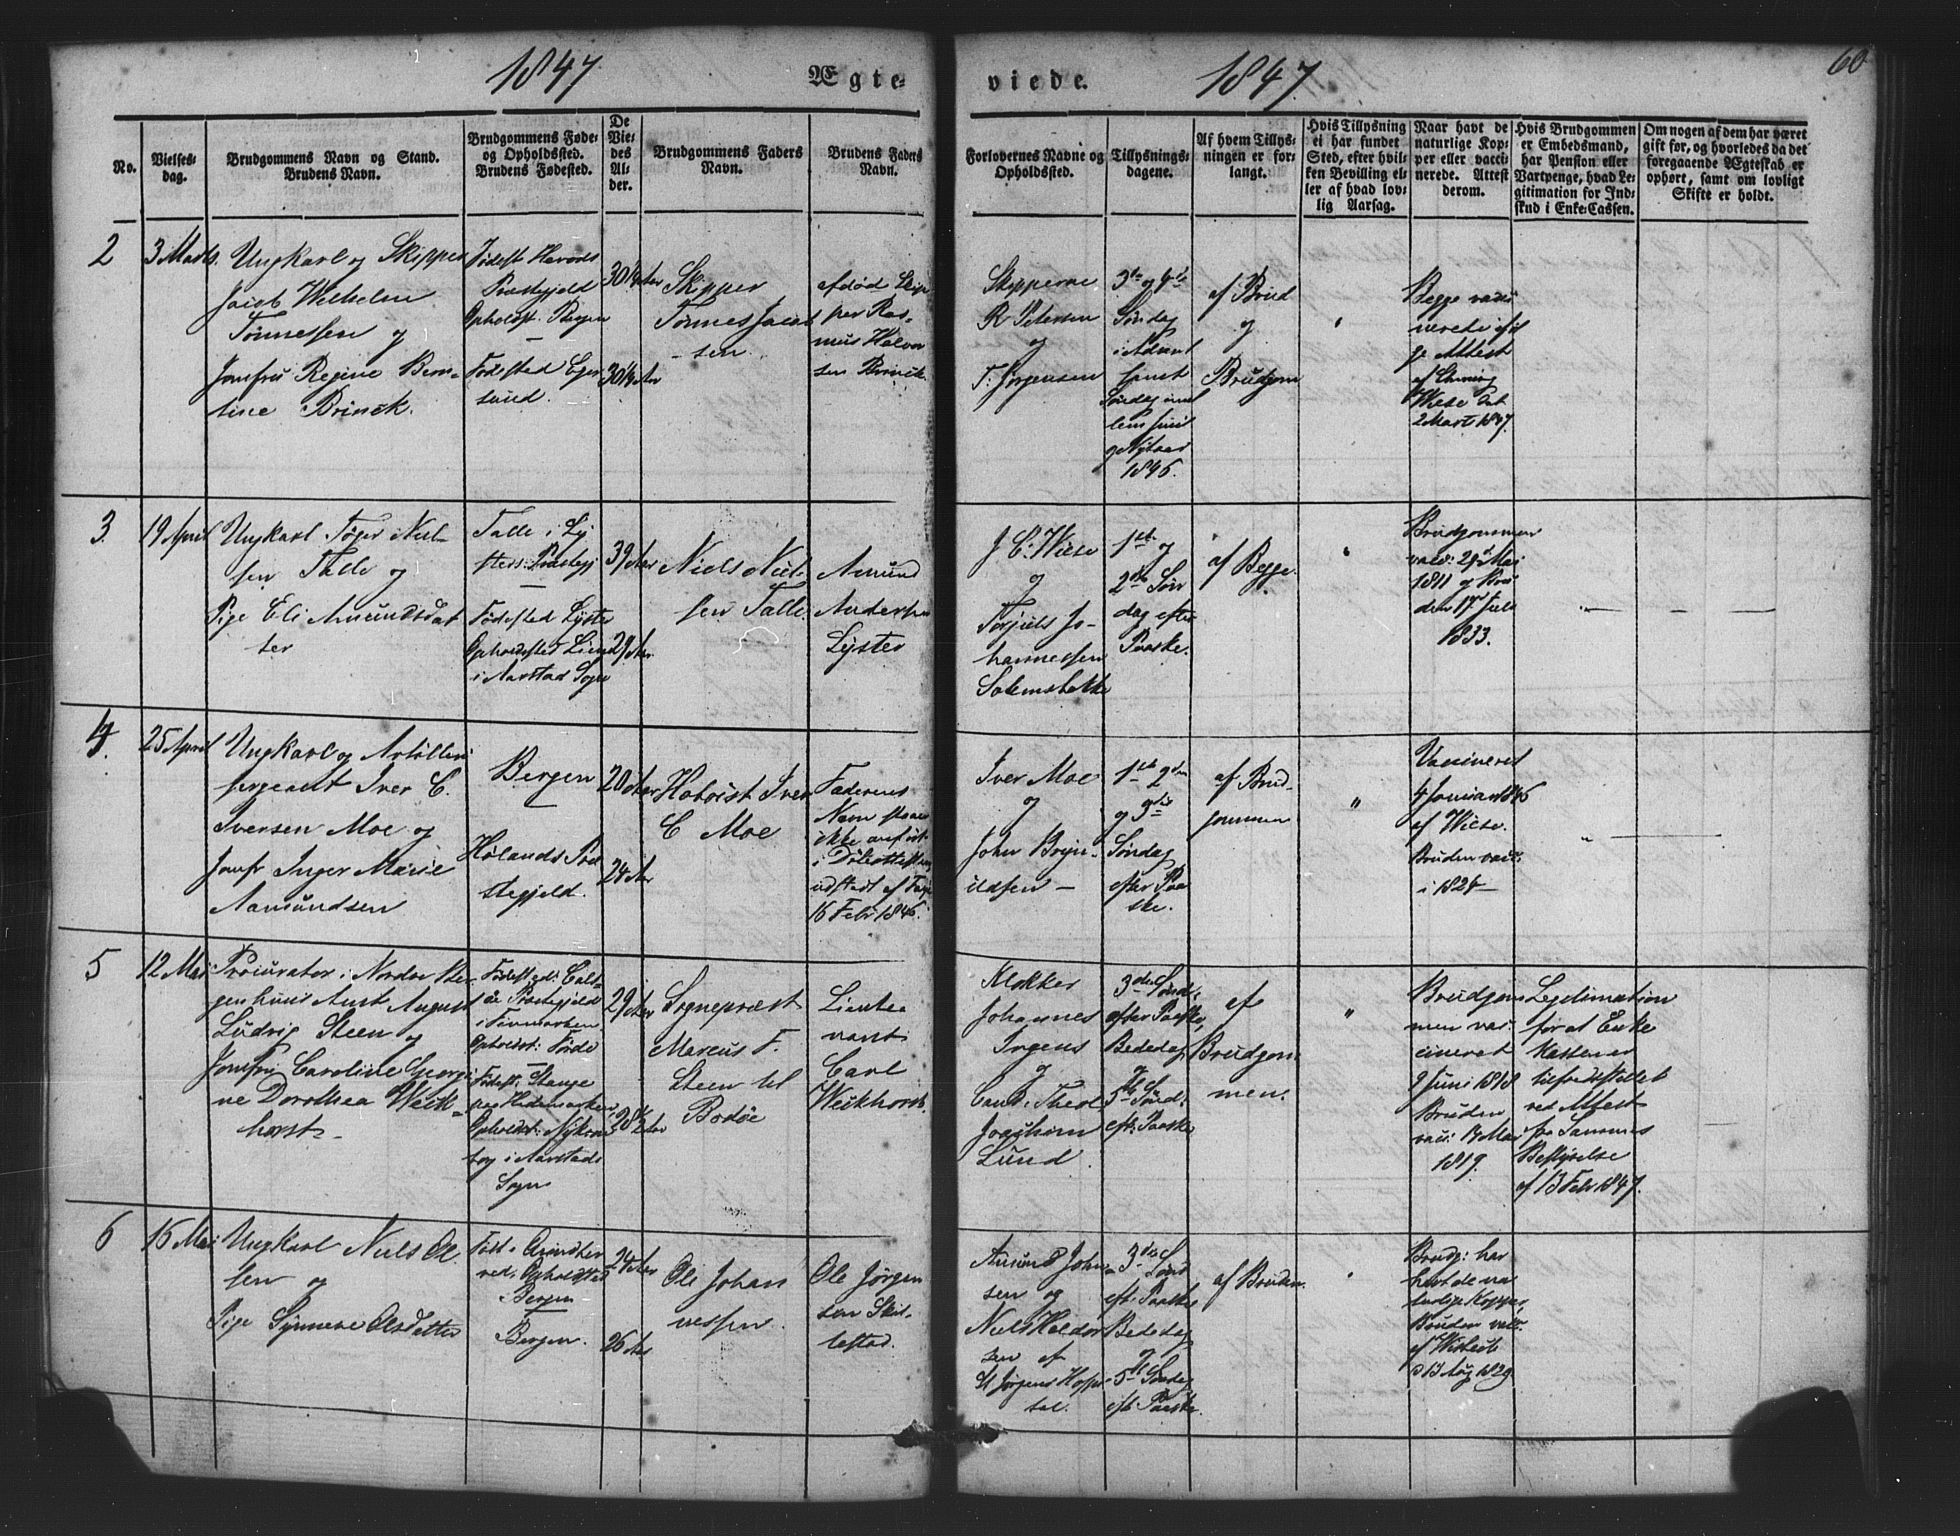 1847 Ægte-
viede. 1847. 60
No.
Vielses-
dag.
Brudgommens Navn og Stand.
Brudens Navn.
Brudgommens Føde-
og Opholdssted.
Brudens Fødested.
De
Vie-
des
Al-
der.
Brudgommens Faders
Navn.
Brudens Faders
Navn.
Forlovernes Navne og
Opholdssted.
Tillysnings-
dagene.
Af hvem Tillys-
ningen er for-
langt.
Hvis Tillysning
ei har fundet
Sted, efter hvil-
ken Bevilling el-
ler af hvad lov-
lig Aarsag.
Naar havt de
naturlige Kop-
per eller vacci-
nerede. Attest
derom.
Hvis Brudgommen
er Embedsmand,
har Pension eller
Vartpenge, hvad Le-
gitimation for Ind-
skud i Enke-Cassen.
Om nogen af dem har været
gift før, og hvorledes da det
foregaaende Ægteskab er
ophørt, samt om lovligt
Skifte er holdt.
2
3 Marts.
Ungkarl og Skipper
Jacob Wilhelm
Tønnessen og
Jomfru Regine Bern-
tine Brinck.
Fødest. Herøds
Præstegjeld
Opholdst. Bergen
Fødested Eger-
sund.
30 1/4 Aar
30 1/4 Aar
Skipper
Tønnes Jacob
sen.
afdød Skip
per Ras-
mus Halvor
sen Brinck.
Skipperne
R Petersen
og
T: Jørgensen
3die og 4de
Søndag
i Advent
samt
Søndag mel
lem Juul
og Nytaar
1846.
af Brud
og
Brudgom
Begge vacci
nerede iføl
ge Attest
af Chirurg
Wiese dat
2 Marts 1847.
3.
19 April
Ungkarl Tøger Niel-
sen Talle og
Pige Eli Amundsdat
ter
Talle i Ly
sters Præstegj
Fødested Lyster
Opholdssted Lien
i Aarstad Sogn
39 Aar
29 Aar
Niels Niel-
sen Talle.
Amund
Andersen
Lyster
J C. Wiese
og
Torjuls Jo-
hannessen
Solemsbakke
1ste og
2den Søn
dag efter
Paaske.
af Begge.
Brudgommen
vacc: 29de Mai
1811 og Bru
den 17de Juli
1833.
4.
25 April
Ungkarl og Artilleri
sergeant Iver C.
Iversen Moe og
Jomfr Inger Marie
Aamundsen
Bergen
Hølands Præ
stegjeld.
20 Aar
24 Aar
Hoboist Iver
C Moe
Faderens
Navn staaer
ikke anført
i Døbeattesten
udstedt af
16 Febr 1846.
Iver Moe
og
John Bryn-
ildsen
1ste 2den
og 3die
Søndag
efter Paa
ske.
af Brud-
gommen
Vaccineret
4 Januar 1846
af Wiese.
Bruden vacc:
i 1824
5
12 Mai
Procurator i Nordre Ber-
genhuus Amt August
Ludvig Steen og
Jomfru Caroline Georgi
ne Dorothea Weck-
horst
Præstegjeld
i Finmarken
Opholdst: Førde
Fødest: Stange
paa Hedemarken
Opholdst: Nykron
borg i Aarstads
Sogn
29 Aar
28 1/2 Aar
Sognepræst
Marcus F.
Steen til
Bodøe
Lieute
nant
Carl
Weckhorst.
Klokker
Johannes
Irgens
og
Cand: Theol
Joachim
Lund
3die Sønd:
efter Paaske,
Bededag
og
5te Sønd:
eft: Paaske
af
Brudgom
men.
Brudgom
men vac-
cineret
9 Juni 1818
Bruden
vacc: 13 Mai
1819.
Legitimation
for at Enke
kassen er
tilfredsstillet
ved Attest
fra Sammes
Bestyrelse
af 13 Febr 1847.
6
16 Mai
Ungkarl Niels Ol
sen og
Pige Synneve Olsdatter
Født i Qvindher
red. Opholdsted
Bergen
Bergen.
24 Aar
26 Aar
Ole Johan
nessen.
Ole Jørgen
sen Skil-
lestad.
Amund John
sen og
Niels Haldor
sen af
St Jørgens Hospi
tal.
3die Sønd
eft: Paaske
Bededag
og
5te Søndag
eft: Paaske.
af Bruden.
Brudg: har
havt de na
turlige Kopper,
Bruden vacc.
af
d 13 Aug 1829.